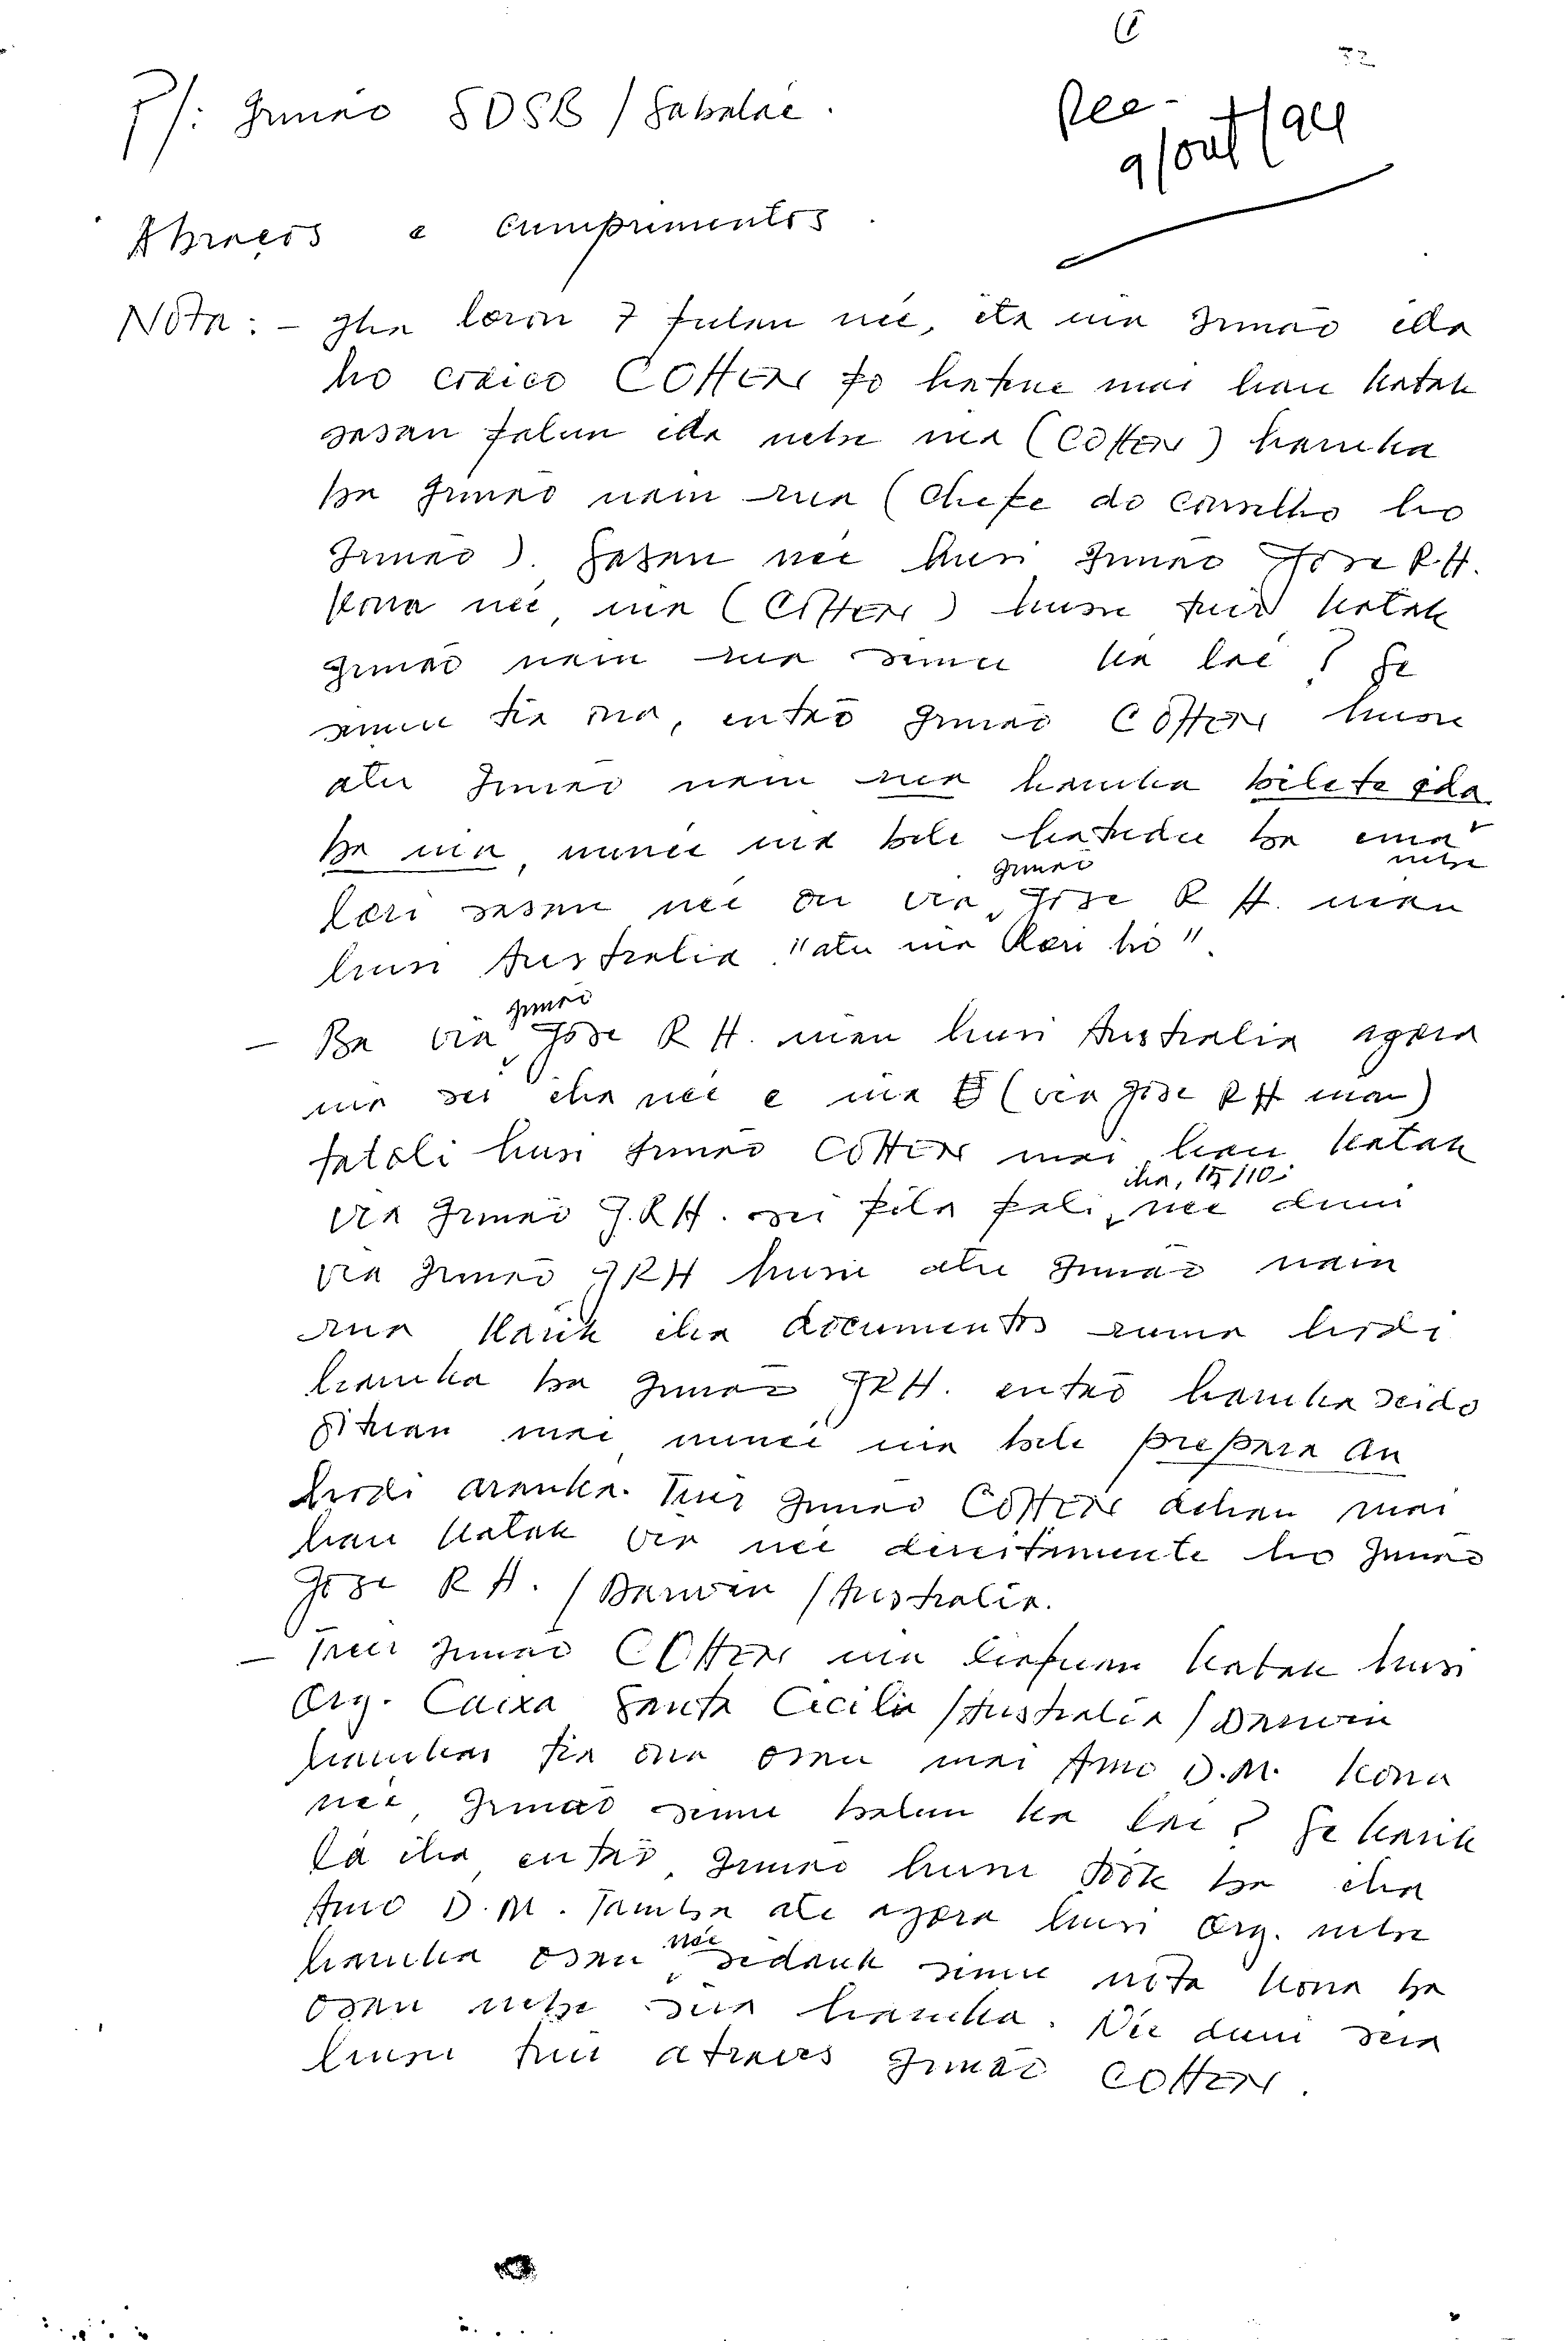 72
P/: Irmão SDSB / Sabalae.
Rec-
9/out/94
Abraços e cumprimentos.
Nota: - Iha loron 7 fulan neé, ita nia Irmão ida
ho código COTTEN fo hatene mai hau katak
sasan falun ida nebe nia (COTTEN) haruka
ba Irmão nain rua (Chefe do conselho ho
Irmão). Sasan neé husi Irmão Jose R.H.
Kona neé, nia (COTTEN) husu tuir katak
Irmão nain rua simu ka lae? Se
simu tia ona, então Irmão COTTEN husu
atu Irmão nain rua haruka bilete ida
ba nia, nuneé nia bele hatudu ba ema nebe
lori sasan neé ou via Irmão Jose R H. nian
husi Australia "atu nia lori ho".
- Ba via Irmão Jose R H. nian husi Australia agora
nia sei iha neé e nia (via Jose R H nian)
fatoli husi Irmão COTTEN mai hau katak
via Irmão J.R.H. sei fila fali iha, 15/10; neé duni
via Irmão JRH husu atu Irmão nain
rua karik iha documentos ruma hodi
haruka ba Irmão JRH. então haruka seido
oituan mai nuneé nia bele prepara an
hodi aranka. Tuir Irmão COTTEN dehan mai
hau katak via neé direitamente ho Irmão
Jose R H. / Darwin / Australia.
- Tuir Irmão COTTEN nia liafuan katak husi
Org. Caixa Santa Cicilia / Australia / Darwin
haruka tia ona osan mai Amo D.M. Kona
neé, Irmão simu balun ka lae? Se karik
la iha, então, Irmão husu took ba iha
Amo D.M. Tamba ate agora husi Org. nebe
haruka osan neé sidauk simu nota kona ba
osan nebe sira haruka. Neé duni sira
husu tuir atraves Irmão COTTEN.